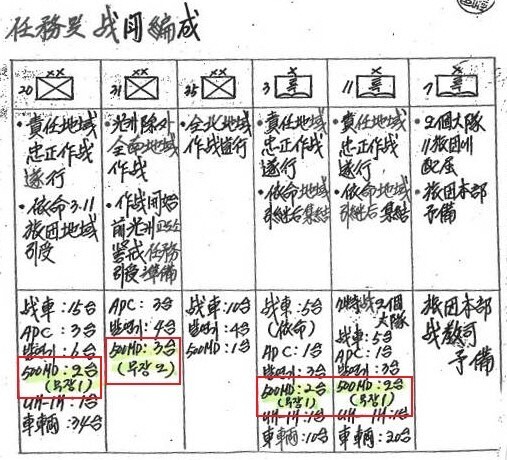 任務및 战鬪編成
XX
20
XX
31
XX
35
X
3
X
11
X
7
• 責任地域
忠正作战
遂行
• 依命 3.11
旅団地域
引受
• 光州 除外
全南地域
作战
• 作战開始
前光州
警戒任務
引受準備
• 全北地域
作战遂行
• 責任地域
忠正作战
遂行
• 依命地域
引継后集結
• 責任地域
忠正作战
遂行
• 依命地域
引継后集結
• 2個大隊
11旅団에
配属
• 旅団本部
予備
战車 : 15台
APC : 3台
발연기 : 6台
500MD : 2台
(무장1)
UH-1H : 1台
車輌 : 34台
APC : 3台
발연기 : 4台
500MD : 3台
(무장2)
战車 : 10台
발연기 : 4台
500MD : 1台
战車 : 5台
(依命)
APC : 1台
발연기 : 3台
500MD : 2台
(무장1)
UH-1H : 1台
車輌 : 10台
特战2個
大隊
战車 : 5台
APC : 1台
발연기 : 3台
500MD : 2台
(무장1)
UH-1H : 1台
車輌 : 20台
旅団本部
战教司
予備